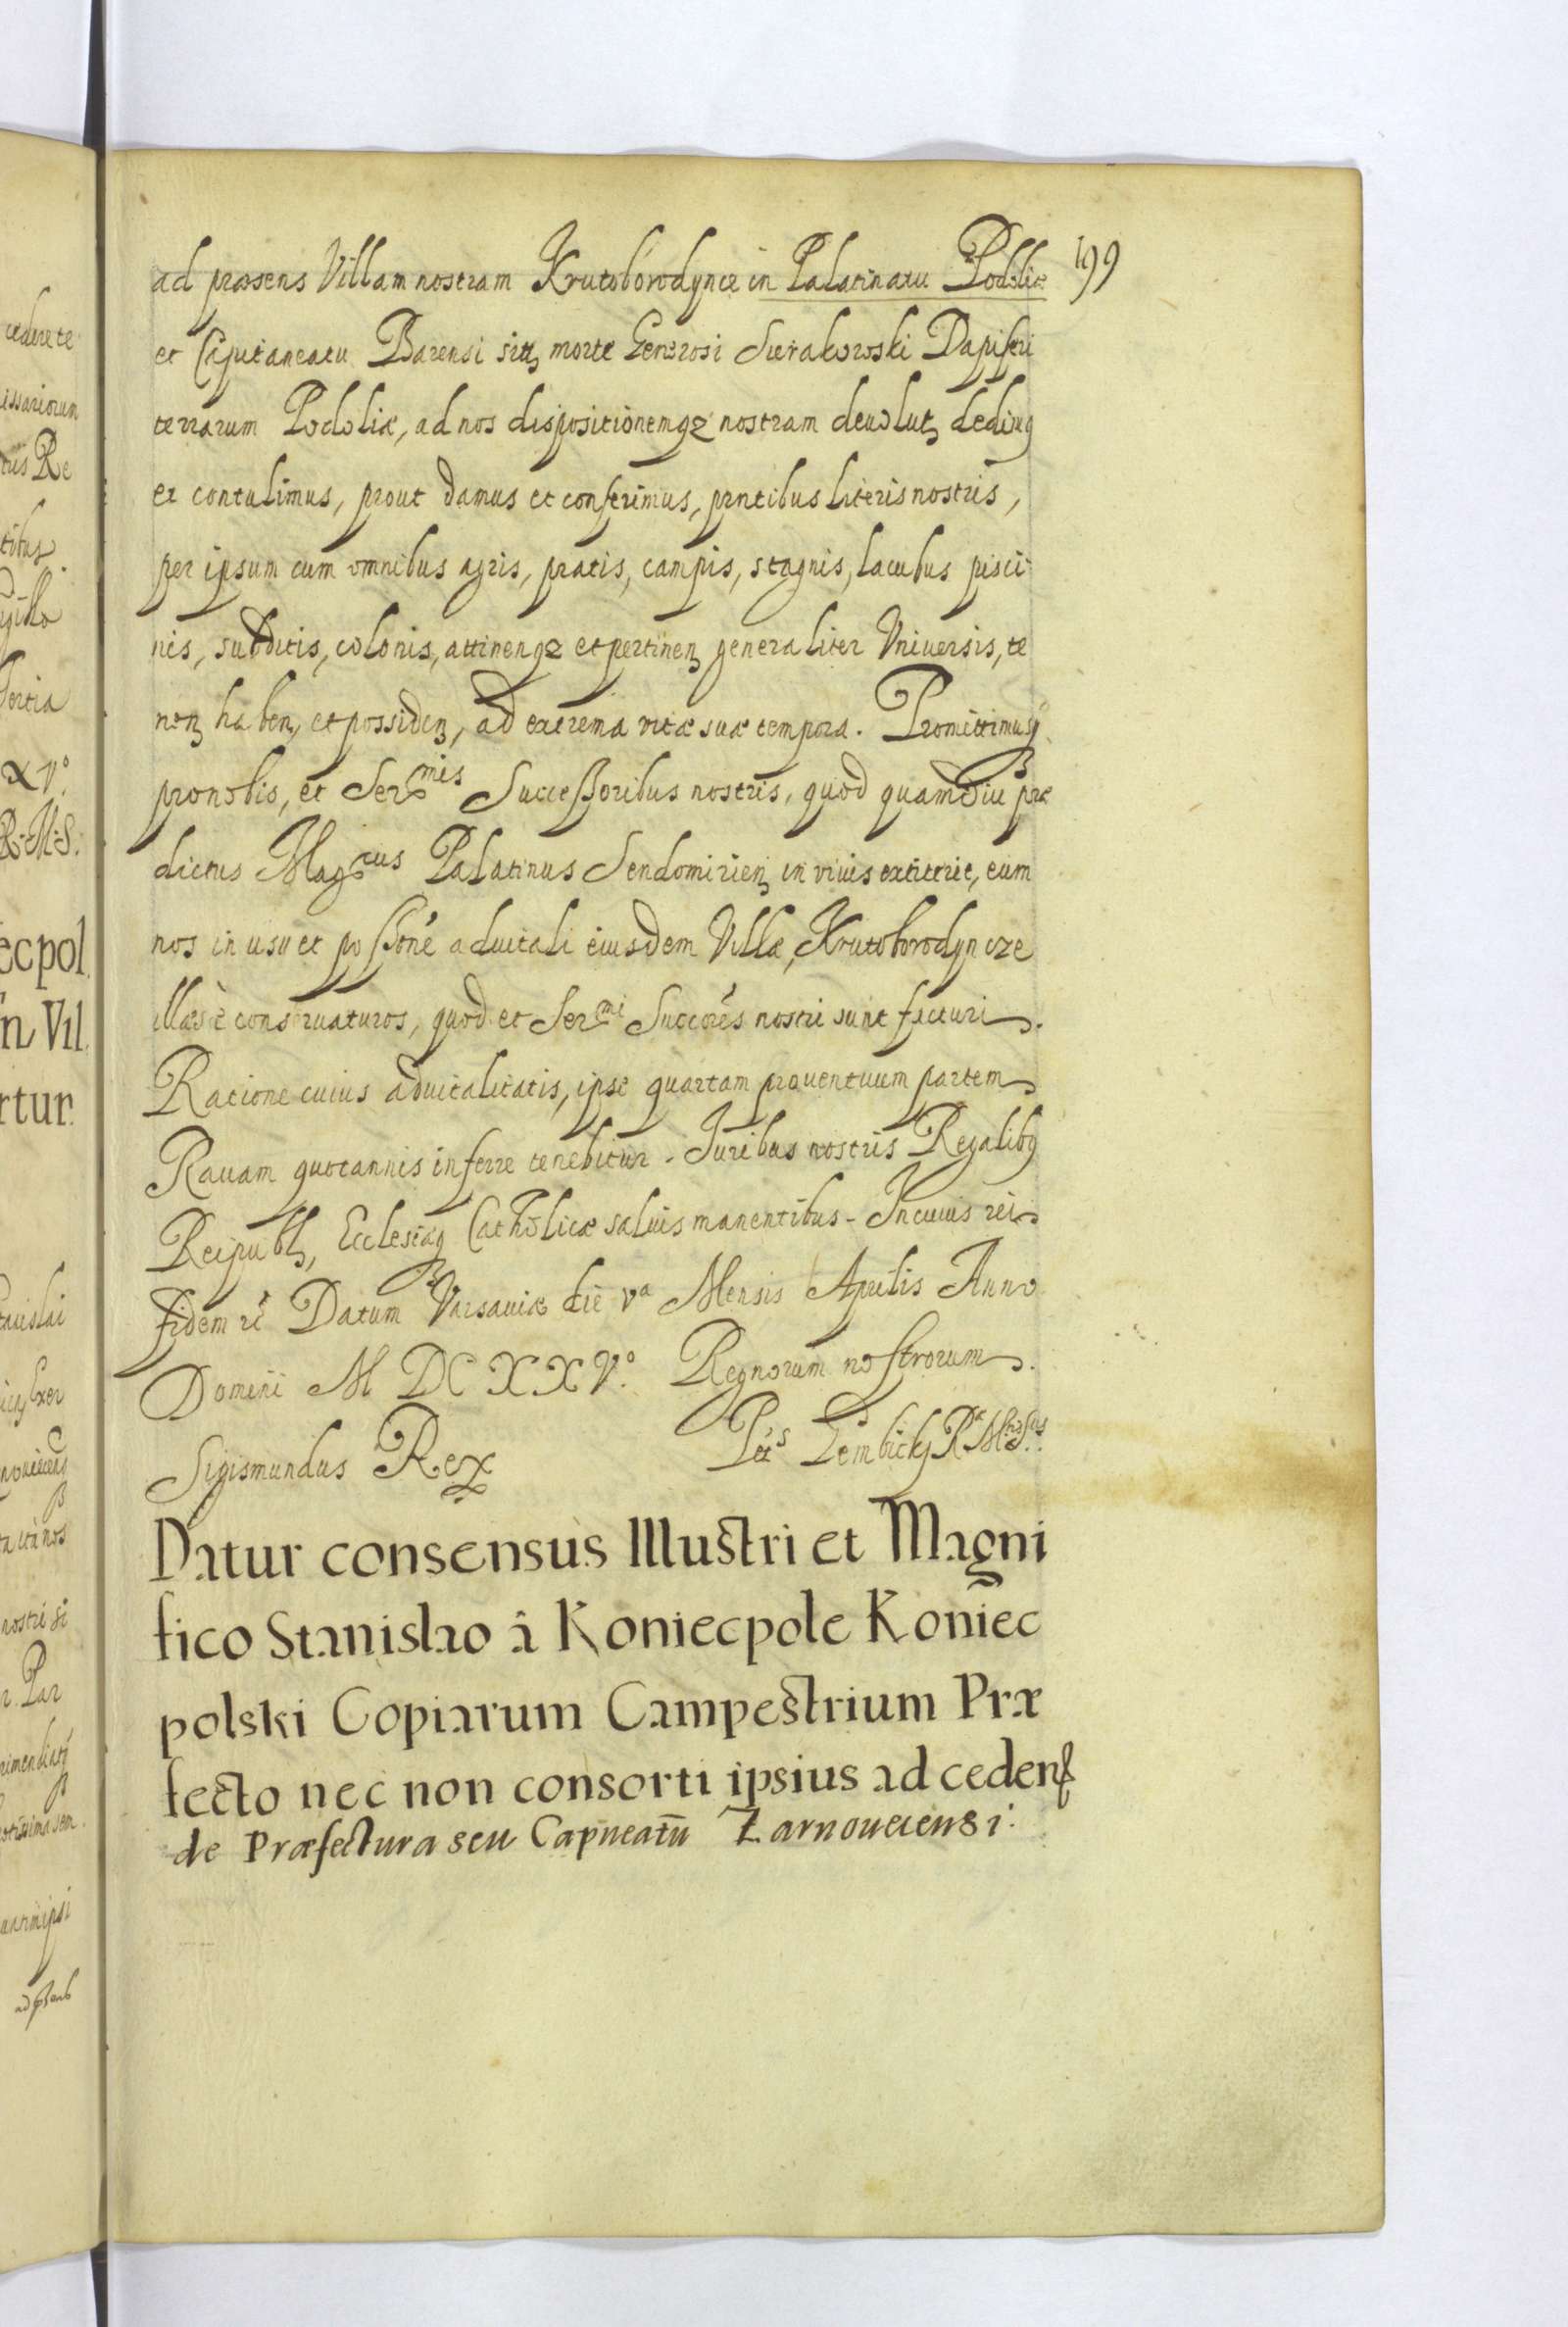 199
ad præsens Villam nostram Krutoborodynce in Palatinatu Podoliæ
et Capitaneatu Barensi sitt, morte Generosi Sierakowski Dapiferi
terrarum Podoliæ, ad nos dispositionemq3 nostram deuolut, dedimꝰ
et contulimus, prout damus et conferimus, pntibus literis nostris,
per ipsum cum omnibus agris, pratis, campis, stagnis, lacubus pisci
nis, subditis, colonis, attinenq3 et pertinen, generaliter Vniuersis, te
nen, haben, et possiden, ad extrema vitæ suæ tempora. Promittimusq
pro nobis, et Ser^mis Successoribus nostris, quod quamdiu præ
dictus Mag^cus Palatinus Sendomirien, in viuis extiterit, eum
nos in usu et possoné aduitali eiusdem Villæ, Krutoborodyncze
illæsè conseruaturos, quod et Ser^mi Succorés nostri sunt facturi.
Ratione cuius aduitalitatis, ipse quartam prouentuum partem
Rauam quotannis inferre tenebitur. Iuribus nostris Regalibꝰ
Reipubl, Ecclesiæq Catholicæ saluis manentibus. In cuius rei
fidem rc Datum Varsauiæ die V^a Mensis Aprilis Anno
Domini M DC XXV.º Regnorum nostrorum.
Sigismundus Rex
Pet^s Gembicky R^æ M^tis S^us.
Datur consensus Illustri et Magni
fico Stanislao â Koniecpole Koniec
polski Copiarum Campestrium Præ
fecto nec non consorti ipsius ad cedend
de Præfectura seu Capneatū Zarnoueiensi.